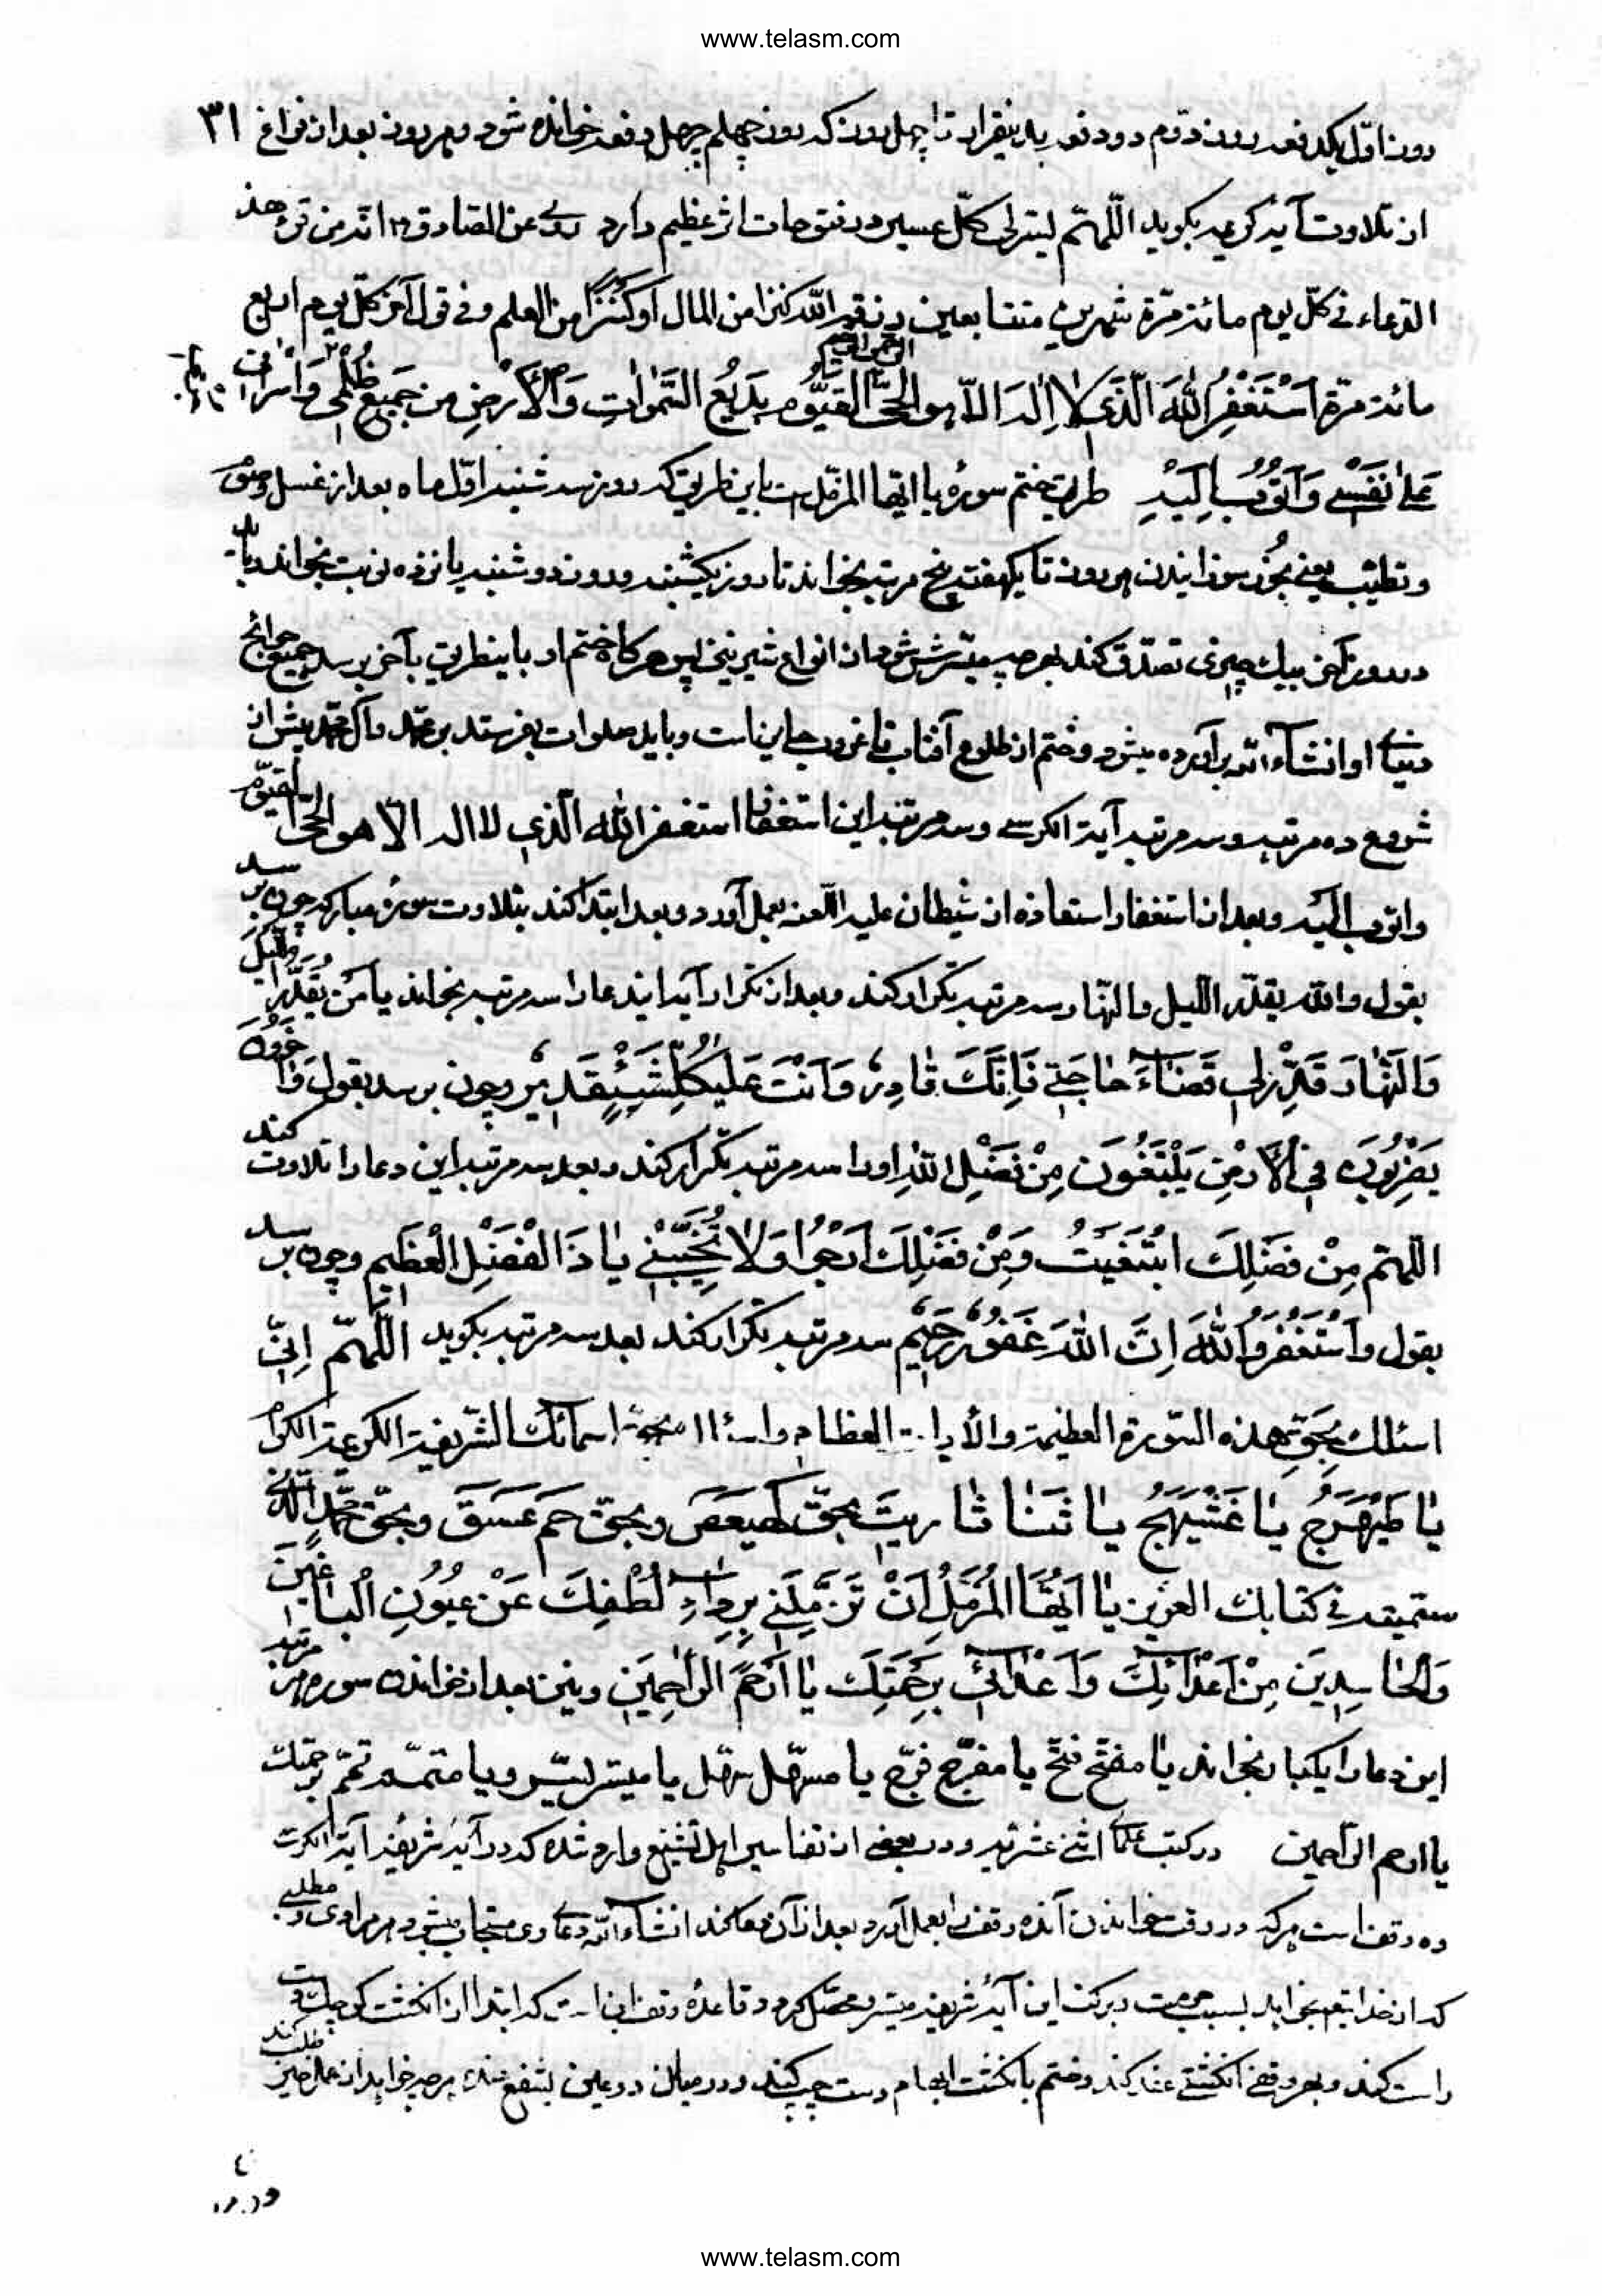 www.telasm.com
روز اوّل یکدفعه روز دوّم دو دفعه بدینقرار تا چهل روز که روز چهلم چهل دفعه خوانده شود و هر روز بعد از فراغ ۳۱
از تلاوت آیه کریمه بگوید اللّهمّ یسّر لی کلّ عسیر در فتوحات اثر عظیم دارد روی عن الصّادق انّه من قرء هذ
الدّعاء فی کلّ یوم مائة مرّة شهرین متتابعین رزقه الله کنزا من المال او کنزا من العلم و فی قول آخر کلّ یوم اربع
مائة مرّة اَسْتَغْفِرُ اللهَ الَّذی لا اِلٰهَ اِلّا هو الرّحمن الرّحیم الحَیُّ القَیُّوم بَدیعُ السَّمٰوٰاتِ وَالْاَرْضِ مِن جَمیعِ ظُلْمی وَ اسْرافی
عَلیٰ نَفْسی وَ اَتُوبُ اِلَیْهِ طریق ختم سورهٔ یا ایّها المزّمّل است باین طریق که روز سه شنبه اوّل ماه بعد از غسل وضو
و تطیّب یعنی بخور سوزانیدن هر روز تا یکهفته پنج مرتبه بخواند تا روز یکشنبه و روز دوشنبه یازده نوبت بخواند باید
در روز آخر بیک چیزی تصدّق کند بهر چه میسّرش شود از انواع شیرینی پس هرگاه ختم او باینطریق بآخر برسد جمیع حوائج
دنیای او انشاءالله برآورده میشود و ختم از طلوع آفتاب تا غروب جایز است و باید صلوات بفرستد بر محمّد و آل محمّد پیش از
شروع ده مرتبه و سه مرتبه آیة الکرسی و سه مرتبه این استغفار استغفر الله الّذی لا اله الّا هو الحیّ القیّوم
و اتوب الیه و بعد از استغفار استعاذه از شیطان علیه اللّعنه بعمل آورد و بعد ابتدا کند بتلاوت سورهٔ مبارکه چون برسد
بقول والله یقدّر اللّیل والنّهار سه مرتبه تکرار کند و بعد از تکرار آیه ایندعا را سه مرتبه بخواند یا مَنْ یُقَدِّرُ اللَّیْلَ
وَالنَّهارَ قَدِّرْ لی قَضاءَ حاجَتی فَاِنَّكَ قادِرٌ وَ اَنْتَ عَلیٰ کُلِّ شَیْئٍ قَدیرٌ و چون برسد بقول وَ آخَرُونَ
یَضْرِبُونَ فِی الْاَرْضِ یَبْتَغُونَ مِنْ فَضْلِ اللهِ او را سه مرتبه تکرار کند و بعد سه مرتبه این دعا را تلاوت کند
اللّهمّ مِنْ فَضْلِكَ ابْتَغَیْتُ وَمِنْ فَضْلِكَ اَرْجُوا وَلا تُخَیِّبْنی یا ذَا الْفَضْلِ الْعَظیم و چون برسد
بقول وَاسْتَغْفِرُوا اللهَ اِنَّ اللهَ غَفُورٌ رَحیم سه مرتبه تکرار کند بعد سه مرتبه بگوید اللّهمّ اِنّی
اسئلك بِحَقِّ هذه السّورة العظیمة والآیات العظام و اسئلك بحق اسمائك الشّریفة الکریمة الکرام
بحقّ کهیعص و بحقّ حم عسق و بحقّ محمّد الّذی
سمّیته فی کتابك العزیز یا اَیُّهَا المُزَّمِّلُ اَنْ تُزَمِّلَنی بِرِداءِ لُطْفِكَ عَنْ عُیُونِ الْباغینَ
وَالْحاسِدینَ مِنْ اَعْدائِكَ وَ اَعْدائی بِرَحْمَتِكَ یا اَرْحَمَ الرّاحِمینَ و نیز بعد از خواندن سوره هر مرتبه
این دعا را یکبار بخواند یا مفتّح فتّح یا مفرّج فرّج یا مسهّل سهّل یا میسّر یسّر و یا متمّم تمّم برحمتك
یا ارحم الرّاحمین در کتب علمای اثنی عشریه و در بعضی از تفاسیر اهل تشیّع وارد شده که در آیهٔ شریفه آیة الکرسی
ده وقف است هر که در وقت خواندن آن ده وقف را بعمل آورد بعد از آن دعا کند انشاءالله دعای وی مستجاب میشود هر مرادی و مطلبی
که از خدا بتعه بخواهد بسبب حرمت و برکت این آیهٔ شریفه میسّر و محصّل گردد و قاعدهٔ وقف این است که ابتدا از انگشت کوچك دست
راست کند و بهر وقفی انگشتی عقد کند و ختم بانگشت ابهام دست چپ کند و در میان دو عین یشفع عنده هر چه خواهد از طلب کند
www.telasm.com